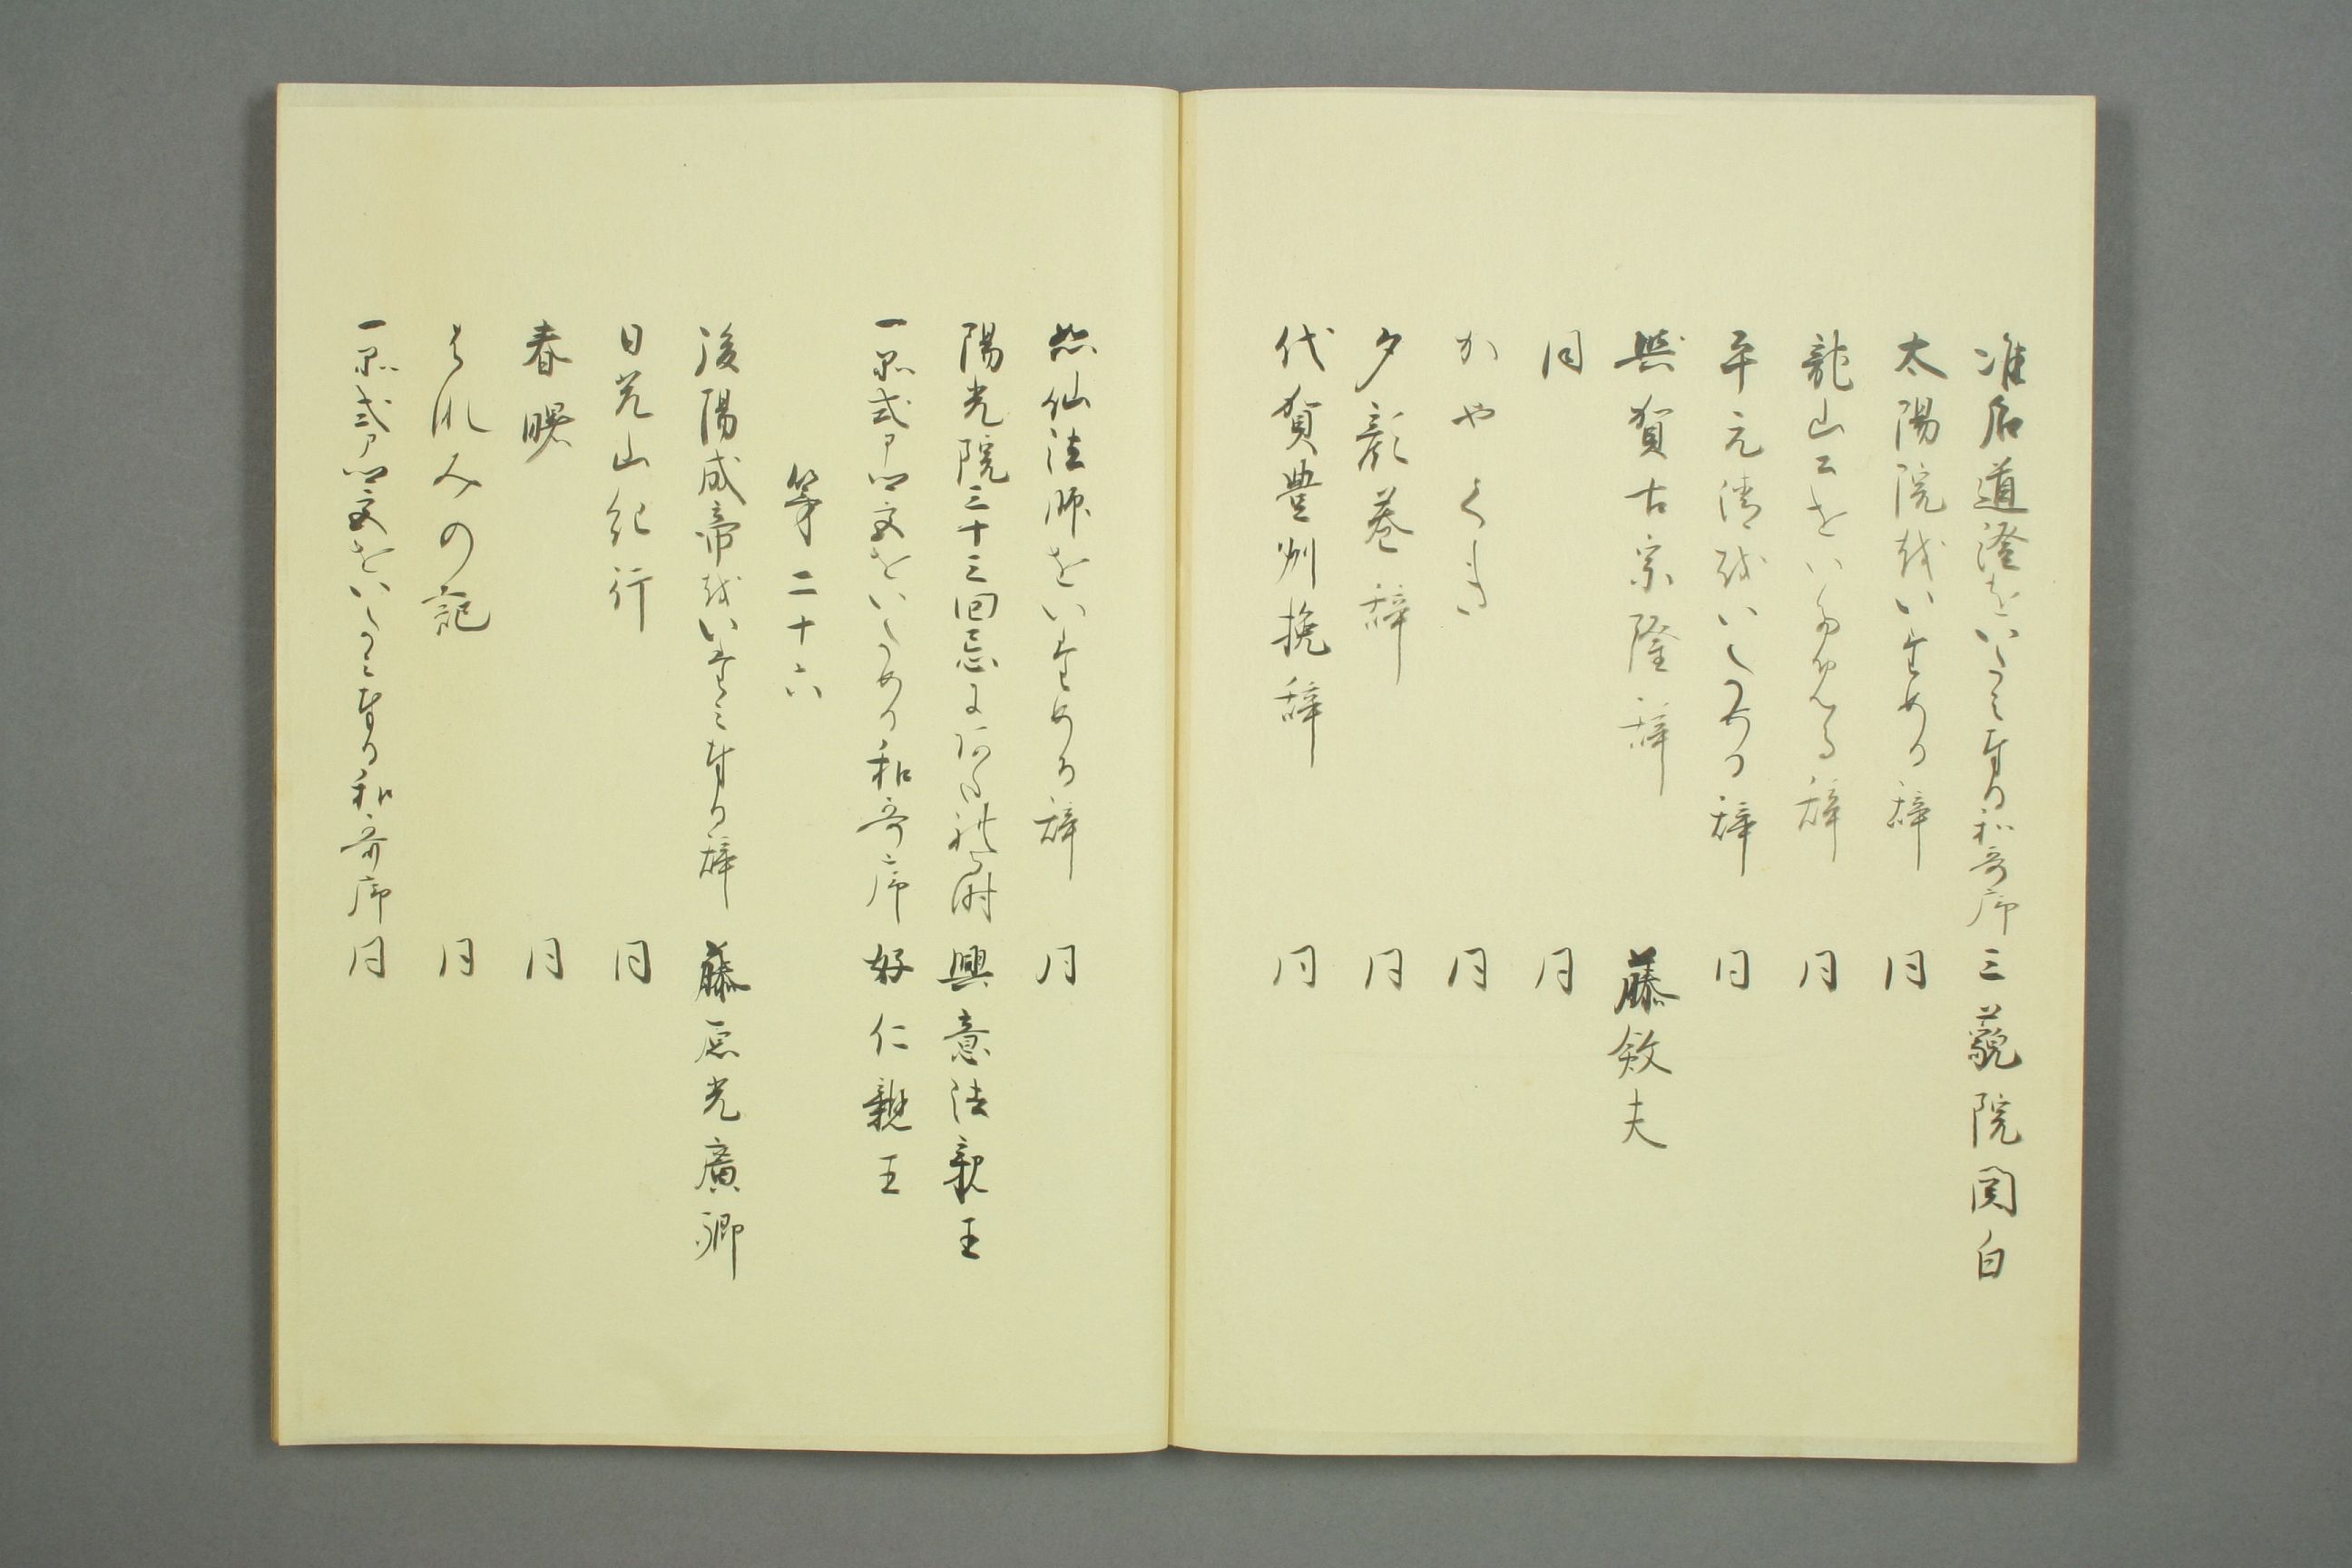 准后道澄をいたミ奉る和哥序 三藐院関白
太陽院越いためる辞 同
龍山公をいためる辞 同
平元清越いためる辞 同
與賀古宗隆辞 藤斂夫
同 同
かやくき 同
夕顔巷辞 同
代賀豊州挽辞 同
恕仙法師をいためる辞 同
陽光院三十三回忌によみ侍る 興意法親王
一品式部卿宮をいためる和哥序 好仁親王
第二十六
後陽成帝越いたミ奉る辞 藤原光廣卿
日光山紀行 同
春曙 同
きれみの記 同
一品式部卿宮をいたミ奉る和哥序 同